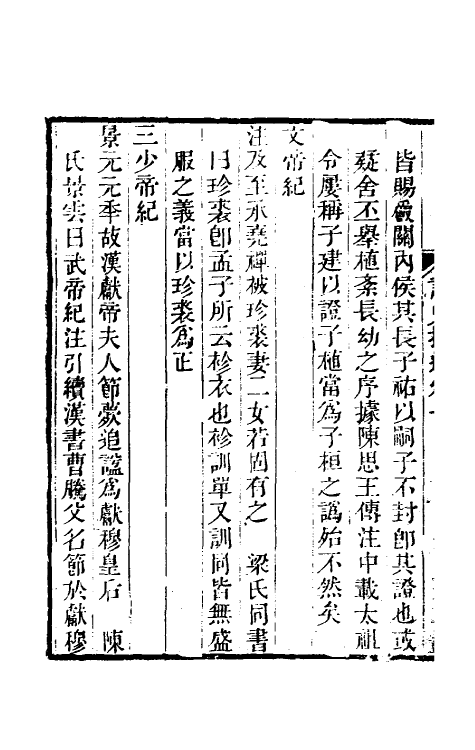 皆賜爵關內侯其長子祐以嗣子不封卽其證也或
疑舍丕舉植紊長幼之序據陳思王傳注中載太祖
令屢稱子建以證子植當爲子桓之譌殆不然矣
文帝紀
注及至承堯禪被珍裘妻二女若固有之　梁氏同書
曰珍裘卽孟子所云袗衣也袗訓單又訓同皆無盛
服之義當以珍裘爲正
三少帝紀
景元元年故漢獻帝夫人節薨追諡爲獻穆皇后　陳
氏景雲曰武帝紀注引續漢書曹騰父名節於獻穆